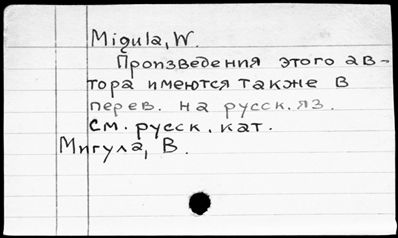 Migula, W.
Произведения этого ав-
тора имеются также в
перев. на русск. яз.
См. русск. кат.
Мигула, В.